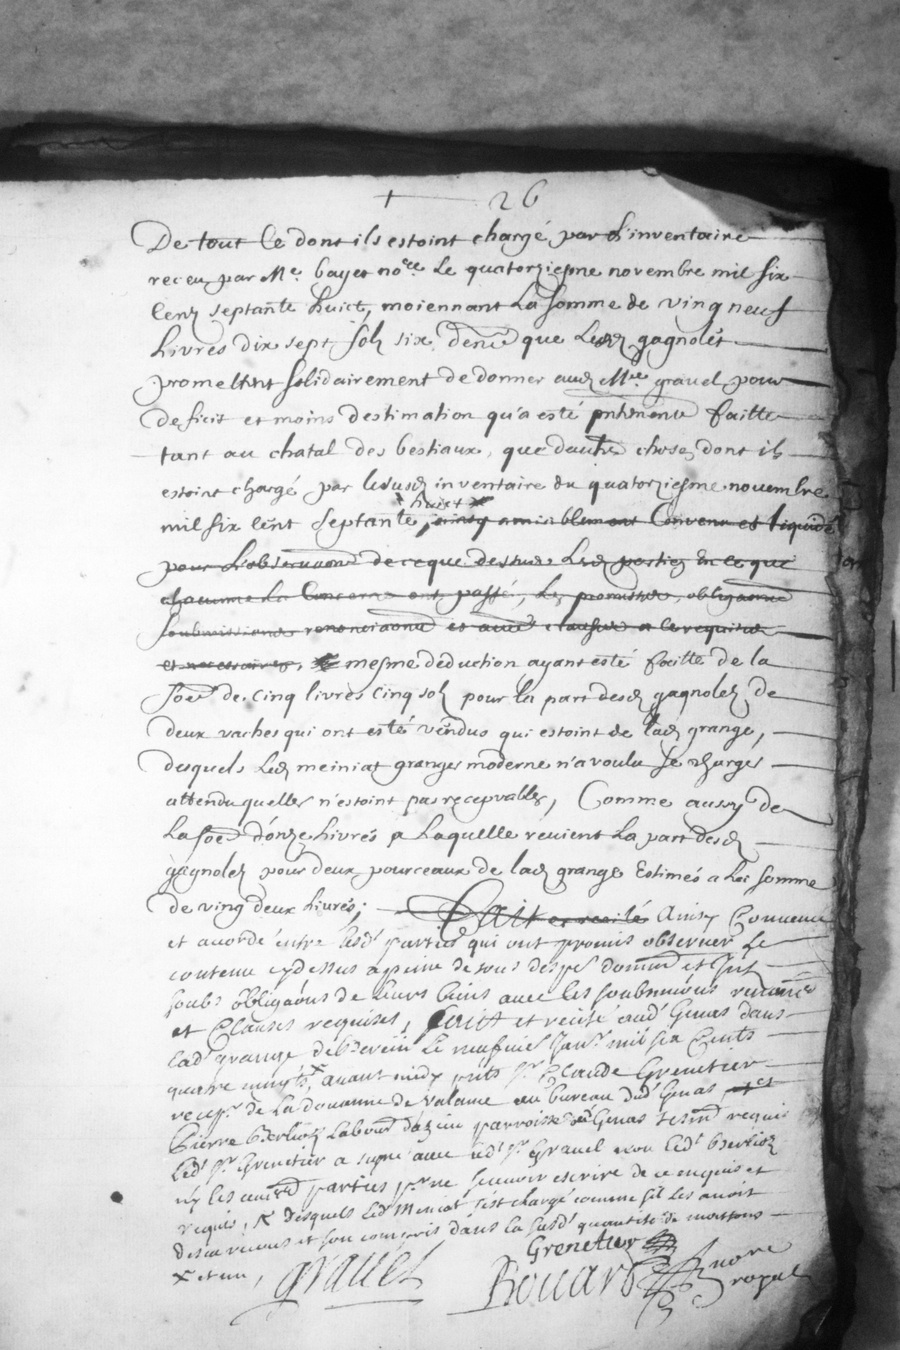 26
De tout ce dont ils estoint chargé par L'inventaire
receu par Me bayet nore Le quatorziesme novembre mil six
Cent septante huict, moiennant La somme de vingneuf
Livres dix sept solz six denr que Lesd gagnolet
promettent solidairement de donner aud Mre gravel pour
deficit et moins destimation qu'a esté faitte
tant au chatal des bestiaux, que dautre chose dont ils
estoint chargé par le susd inventaire du quatorziesme novembre
huict
mil six cent septante, cinq amiablement Convenu et liquidé
pour L'observaon de ce que dessus Lesd parties En ce que
chacunne La Concerne ont passé, Les promesses, obligaons
soubmissions renonciaons et autre clause a ce requises
et necessaires, mesme deduction ayant esté faitte de la
soe de cinq livres cinq solz pour la part desd gagnolet de
deux vaches qui ont esté vendus qui estoint de lad grange,
desquels Led meiniat granger moderne n'a voulu se charger
attendu quelles n'estoint pas recepvables, Comme aussy de
La soe d'onze Livres a Laquelle revient La part desd
gagnolet pour deux pourceaux de lad grange Estimés a la somme
de vingdeux livres; Fait et recité Ainsy Convenu
et acordé entre lesd parties qui ont promis observer Le
contenu cy dessus a peine de tous despe domm et Int
soubs obligaons de leurs biens avec les soubmions renonce
et Clauses requises, faict et recité aud Genas dans
lad grange de le neufvie Janv mil six Cents
quatre vingts, avant midy pnts Sr Claude Grenetier
recepr de La douanne de valance au bureau dud Genas, et
Pierre Berlioz Labour parroisse de Genas tesm requis
Led Sr Grenetier a signé avec led Sr Gravel non led Berlioz
ny les autres parties pr ne scavoir escrire de ce enquis et
requis, x desquels Led Meniat s'est chargé comme sil les avoit
receus et son compris dans la susd quantité de moutons
x et un,
Grenetier
gravel
Rouard
nore
royal